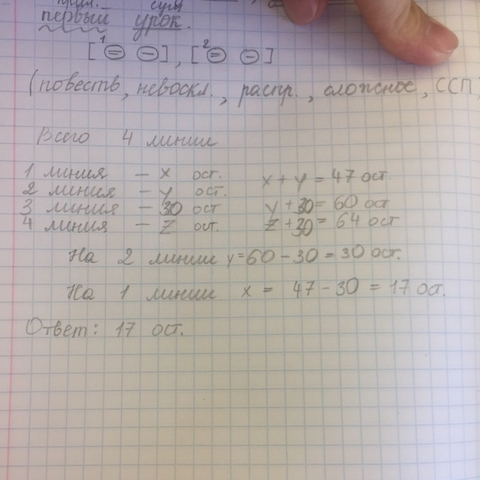 сущ
первый урок.
[¹⊜ ⊖], [²⊜ ⊖]
(повеств., невоскл., распр., сложное, ССП
Всего 4 линии
1 линия – x ост. x + y = 47 ост
2 линия – y ост. y + 30 = 60 ост
3 линия – 30 ост z + 30 = 64 ост
4 линия – z ост.
На 2 линии y = 60 – 30 = 30 ост.
На 1 линии x = 47 – 30 = 17 ост.
Ответ: 17 ост.